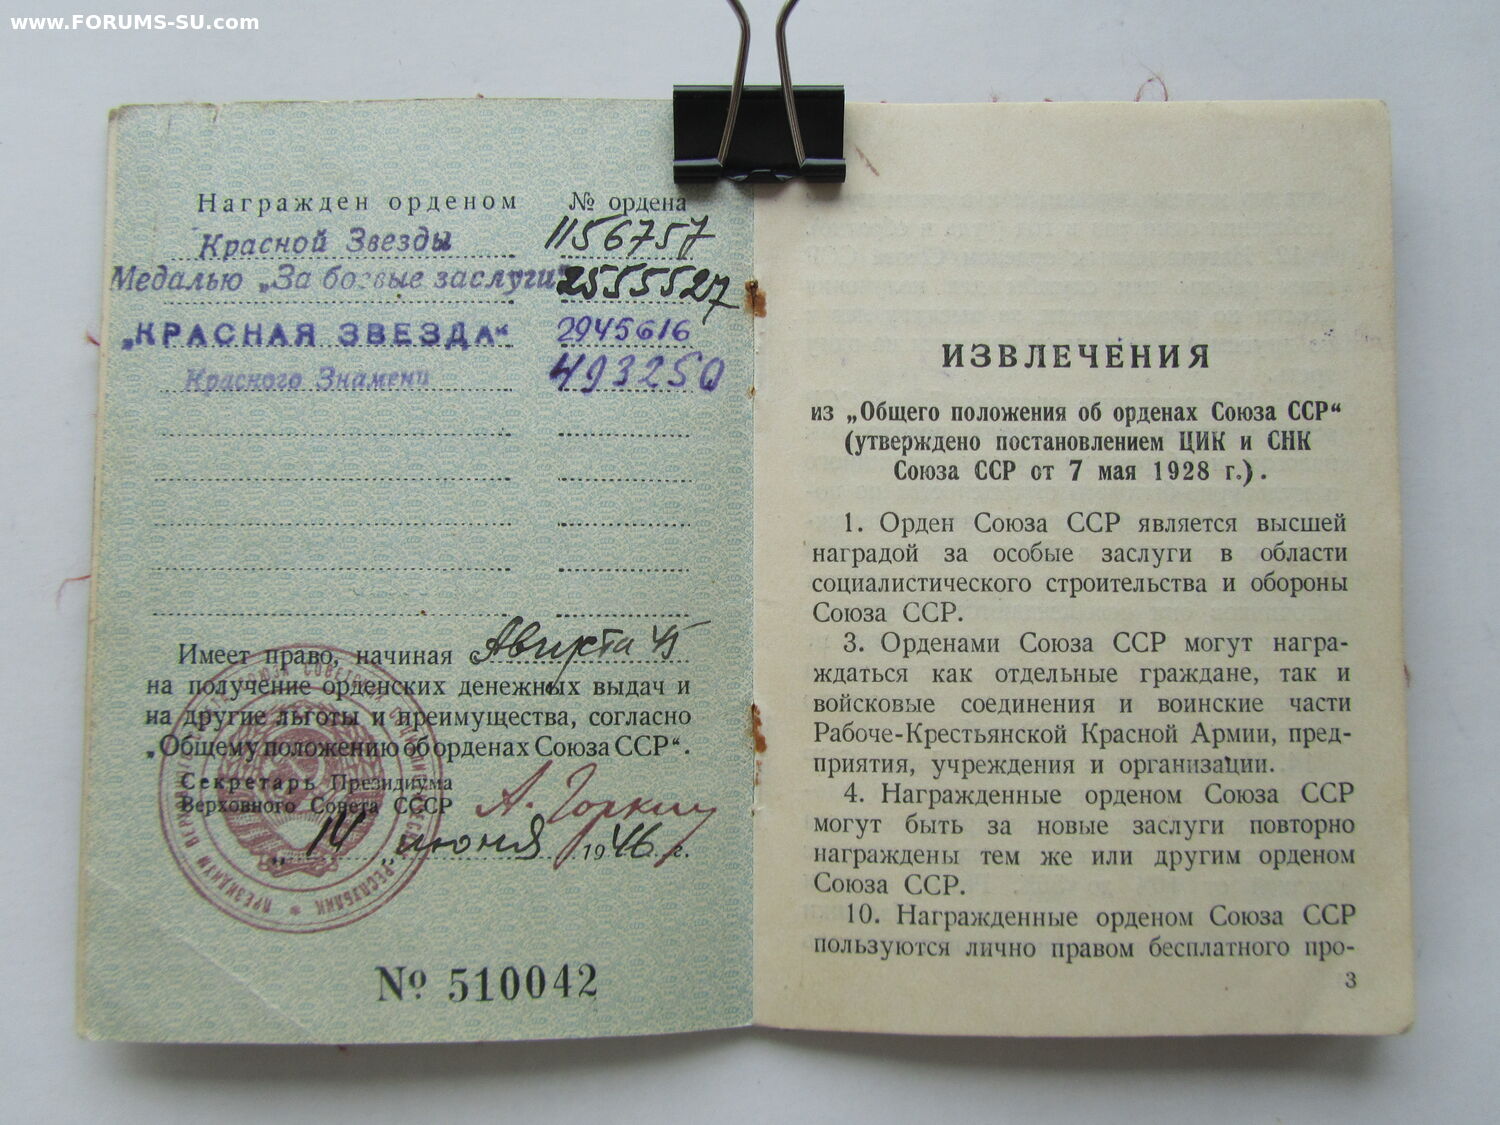 www.FORUMS-SU.com
Награжден орденом № ордена
Красной Звезды 1156757
Медалью „За боевые заслуги" 2555527
„КРАСНАЯ ЗВЕЗДА" 2945616
Красного Знамени 493250
Имеет право, начиная с Августа 45
на получение орденских денежных выдач и
на другие льготы и преимущества, согласно
„Общему положению об орденах Союза ССР".
Секретарь Президиума
Верховного Совета СССР А. Горкин
„14" июня 1946 г.
№ 510042
ИЗВЛЕЧЕНИЯ
из „Общего положения об орденах Союза ССР"
(утверждено постановлением ЦИК и СНК
Союза ССР от 7 мая 1928 г.).
1. Орден Союза ССР является высшей
наградой за особые заслуги в области
социалистического строительства и обороны
Союза ССР.
3. Орденами Союза ССР могут награ-
ждаться как отдельные граждане, так и
войсковые соединения и воинские части
Рабоче-Крестьянской Красной Армии, пред-
приятия, учреждения и организации.
4. Награжденные орденом Союза ССР
могут быть за новые заслуги повторно
награждены тем же или другим орденом
Союза ССР.
10. Награжденные орденом Союза ССР
пользуются лично правом бесплатного про-
3